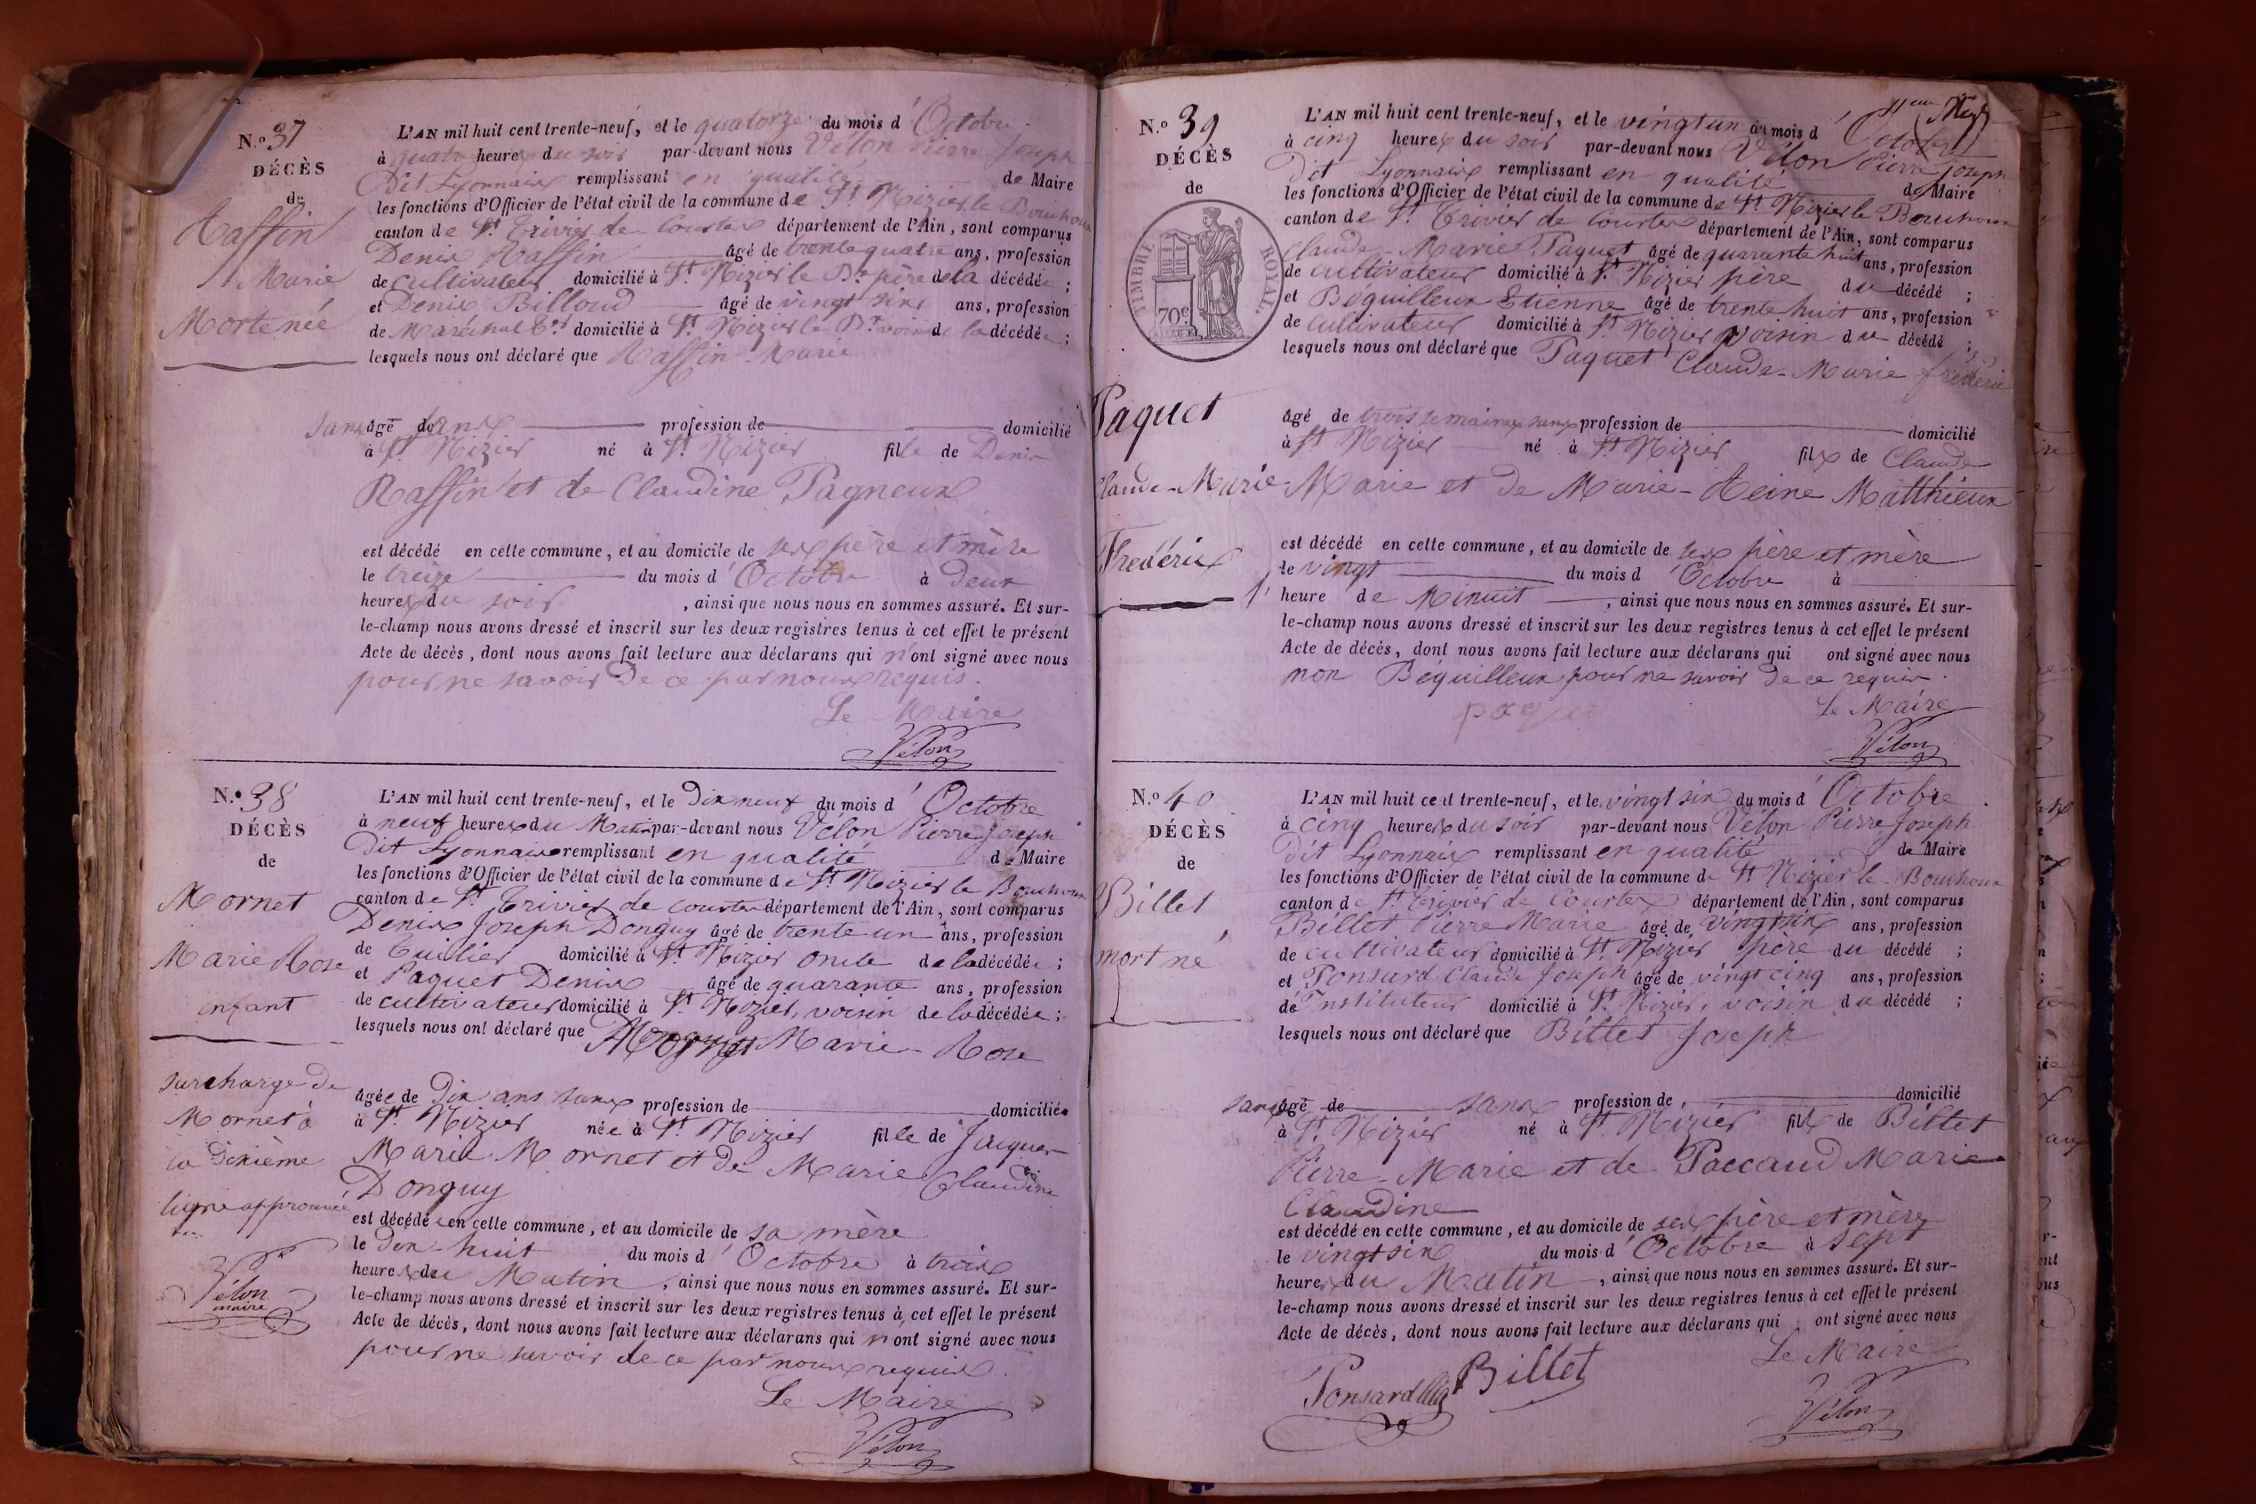 N.º 37
DÉCÈS
de
Raffin
Marie
Mortenée
L'AN mil huit cent trente-neuf, et le quatorze du mois d'Octobre
à quatre heures du soir par-devant nous Vélon Pierre Joseph
Dit Lyonnais remplissant en qualité de Maire
les fonctions d'Officier de l'état civil de la commune de St. Nizier le Bouchoux
canton de St. Trivier de Courtes département de l'Ain, sont comparus
Denis Raffin âgé de trente quatre ans, profession
de Cultivateur domicilié à St. Nizier le Bx. père de la décédée ;
et Denis Billoud âgé de vingt six ans, profession
de Maréchal domicilié à St. Nizier le Bx. voisin de la décédée ;
lesquels nous ont déclaré que Raffin Marie
sans âge de ans profession de domicilié
à St. Nizier né à St. Nizier fille de Denis
Raffin et de Claudine Pagneux
est décédé en cette commune, et au domicile de ses père et mère
le treize du mois d'Octobre à deux
heures du soir, ainsi que nous nous en sommes assuré. Et sur-
le-champ nous avons dressé et inscrit sur les deux registres tenus à cet effet le présent
Acte de décès, dont nous avons fait lecture aux déclarans qui n'ont signé avec nous
pour ne savoir de ce par nous requis.
Le Maire
Vélon
N.º 38
DÉCÈS
de
Mornet
Marie Rose
enfant
surcharge de
Mornet à
la dixième
ligne approuvée
Vélon
maire
L'AN mil huit cent trente-neuf, et le Dix neuf du mois d'Octobre
à neuf heures du Matin par-devant nous Vélon Pierre Joseph
Dit Lyonnais remplissant en qualité de Maire
les fonctions d'Officier de l'état civil de la commune de St. Nizier le Bouchoux
canton de St. Trivier de Courtes département de l'Ain, sont comparus
Denis Joseph Donguy âgé de trente un ans, profession
de Tuilier domicilié à St. Nizier oncle de la décédée ;
et Paquet Denis âgé de quarante ans, profession
de cultivateur domicilié à St. Nizier, voisin de la décédée ;
lesquels nous ont déclaré que Mornet Marie-Rose
âgée de Dix ans sans profession de domiciliée
à St. Nizier née à St. Nizier fille de Jacques
Marie Mornet et de Marie Claudine
Donguy
est décédée en cette commune, et au domicile de sa mère
le Dix-huit du mois d'Octobre à trois
heures du Matin, ainsi que nous nous en sommes assuré. Et sur-
le-champ nous avons dressé et inscrit sur les deux registres tenus à cet effet le présent
Acte de décès, dont nous avons fait lecture aux déclarans qui n'ont signé avec nous
pour ne savoir de ce par nous requis.
Le Maire
Vélon
N.º 39
DÉCÈS
de
TIMBRE ROYAL
70 c.
Paquet
Claude-Marie
Fredéric
L'AN mil huit cent trente-neuf, et le vingt un du mois d'Octobre
à cinq heures du soir par-devant nous Vélon Pierre Joseph
Dit Lyonnais remplissant en qualité de Maire
les fonctions d'Officier de l'état civil de la commune de St. Nizier le Bouchoux
canton de St. Trivier de Courtes département de l'Ain, sont comparus
Claude-Marie Paquet âgé de quarante huit ans, profession
de Cultivateur domicilié à St. Nizier père du décédé ;
et Béguilleux Etienne âgé de trente huit ans, profession
de Cultivateur domicilié à St. Nizier voisin du décédé ;
lesquels nous ont déclaré que Paquet Claude-Marie fréderic
âgé de trois semaines sans profession de domicilié
à St. Nizier né à St. Nizier fils de Claude
Marie et de Marie-Reine Matthieux
est décédé en cette commune, et au domicile de ses père et mère
le vingt du mois d'Octobre à
heure de Minuit, ainsi que nous nous en sommes assuré. Et sur-
le-champ nous avons dressé et inscrit sur les deux registres tenus à cet effet le présent
Acte de décès, dont nous avons fait lecture aux déclarans qui ont signé avec nous
non Béguilleux pour ne savoir de ce requis.
Le Maire
Vélon
N.º 40
DÉCÈS
de
Billet
mort né
L'AN mil huit cent trente-neuf, et le vingt six du mois d'Octobre
à cinq heures du soir par-devant nous Vélon Pierre Joseph
Dit Lyonnais remplissant en qualité de Maire
les fonctions d'Officier de l'état civil de la commune de St. Nizier le Bouchoux
canton de St. Trivier de Courtes département de l'Ain, sont comparus
Billet Pierre Marie âgé de vingt six ans, profession
de cultivateur domicilié à St. Nizier père du décédé ;
et Ponsard Claude Joseph âgé de vingt cinq ans, profession
de Instituteur domicilié à St. Nizier, voisin du décédé ;
lesquels nous ont déclaré que Billet Joseph
sans âge de sans profession de domicilié
à St. Nizier né à St. Nizier fils de Billet
Pierre-Marie et de Paccaud Marie
Claudine
est décédé en cette commune, et au domicile de ses père et mère
le vingt six du mois d'Octobre à sept
heures du Matin, ainsi que nous nous en sommes assuré. Et sur-
le-champ nous avons dressé et inscrit sur les deux registres tenus à cet effet le présent
Acte de décès, dont nous avons fait lecture aux déclarans qui ont signé avec nous
Le Maire
Ponsard Billet
Vélon